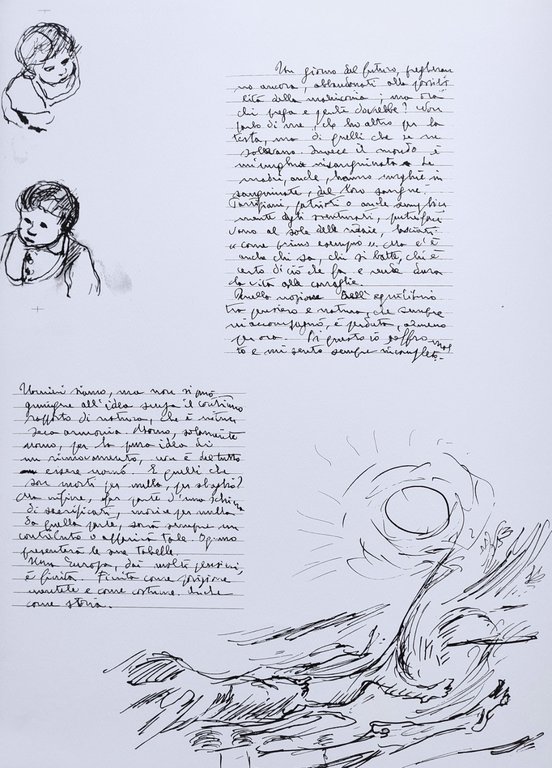 Un giorno del futuro, pregheran
no ancora, abbandonati alla possibi
lità della malinconia; ma ora
chi prega e pente dovrebbe? Non
parlo di me, che ho altro per la
testa, ma di quelli che se ne
Invece il mondo è
insanguinato. Le
madri, anche, hanno unghie in
sanguinate, del loro sangue.
Partigiani, patrioti o anche semplice
mente degli sventurati, putrefan
no al sole delle risaie, lasciati
"come primo esempio". Ma c'è
anche chi sa, chi si batte, chi è
certo di ciò che fa e rende dura
la vita alle canaglie.
Quella nozione dell'equilibrio
tra pensiero e natura, che sempre
mi accompagnò, è perduta, almeno
per ora. Di questo io soffro mol
to e mi sento sempre incompleto.
Uomini siamo, ma non si può
giungere all'idea senza il continuo
rapporto di natura, che è intrin
seca armonia. Uomo, solamente
uomo, per la pura idea di
un rinnovamento, non è del tutto
essere uomo. E quelli che
son morti per nulla, per sbaglio?
Ma infine, far parte d'una schiera
di sacrificati, morire per nulla
da quella parte, sarà sempre un
contributo a offerirà tale. Ognuno
presenterà le sue tabelle.
Una Europa, dai molti pensieri,
è finita. Finita come posizione
mentale e come costume. Anche
come storia.